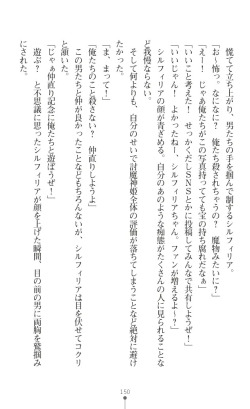 慌てて立ち上がり、男たちの手を掴んで制するシルフィリア。
「お〜怖っ。なになに？　俺たち殺されちゃうの？　魔物みたいに？」
「えー！　じゃあ俺たちがこの写真持ってても宝の持ち腐れだなぁ」
「いいこと考えた！　せっかくだしＳＮＳとかに投稿してみんなで共有しようぜ！」
「いいじゃん！　よかったねー、シルフィリアちゃん。ファンが増えるよ〜？」
シルフィリアの顔が青ざめる。自分のあのような痴態がたくさんの人に見られることな
ど我慢ならない。
そして何よりも、自分のせいで討魔神姫全体の評価が落ちてしまうことなど絶対に避け
たかった。
「ま、まって！」
「俺たちのこと殺さない？　仲直りしようよ」
この男たちと仲が良かったことなどもちろんないが、シルフィリアは目を伏せてコクリ
と頷いた。
「じゃぁ仲直り記念に俺たちと遊ぼうぜ！」
遊ぶ？　と不思議に思ったシルフィリアが顔を上げた瞬間、目の前の男に両胸を鷲掴み
にされた。
150